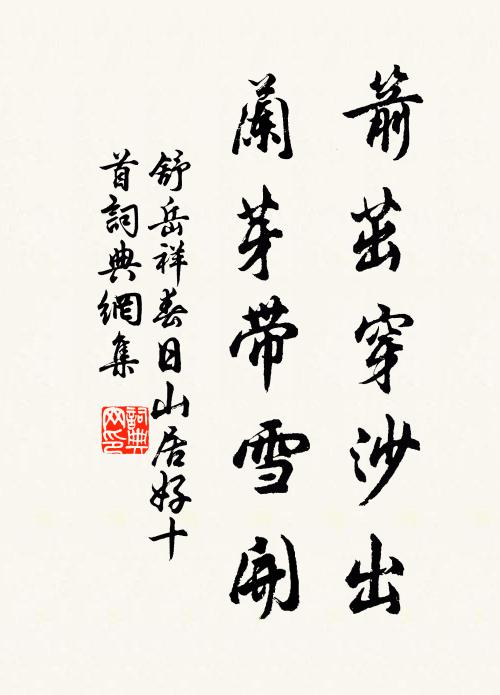 箭茁穿沙出
蘭芽帶雪開
舒岳祥春日山居好十
首詞典網集
詞典网印